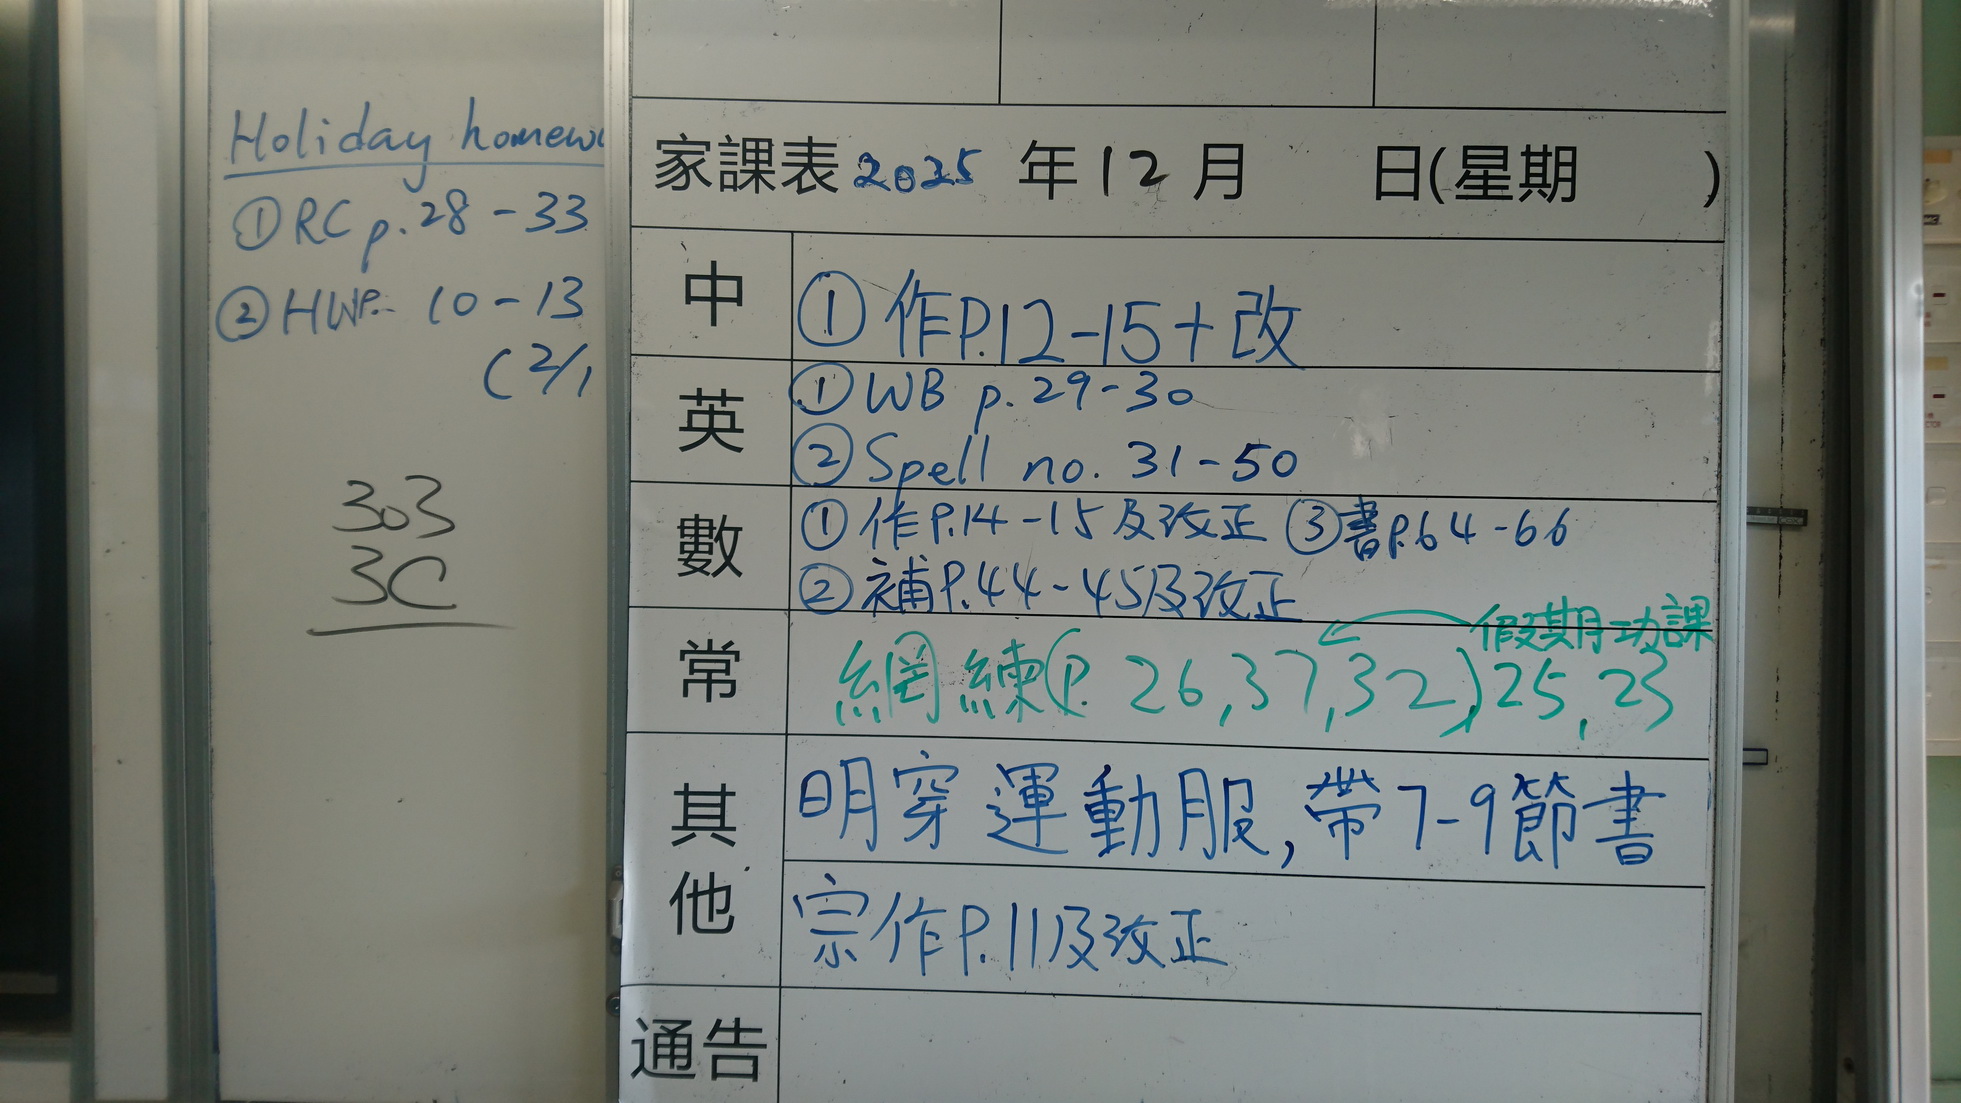 Holiday homew
① RC p. 28 - 33
② HW p. 10 - 13
(2/1
303
3C
家課表 2025 年 12 月 日(星期 )
中
① 作P.12-15+改
英
① WB p. 29-30
② Spell no. 31-50
數
① 作P.14-15及改正 ③書P.64-66
② 補P.44-45及改正
假期功課
常
網練(P. 26,37,32)25,23
其他
明穿運動服,帶7-9節書
宗作P.11及改正
通告